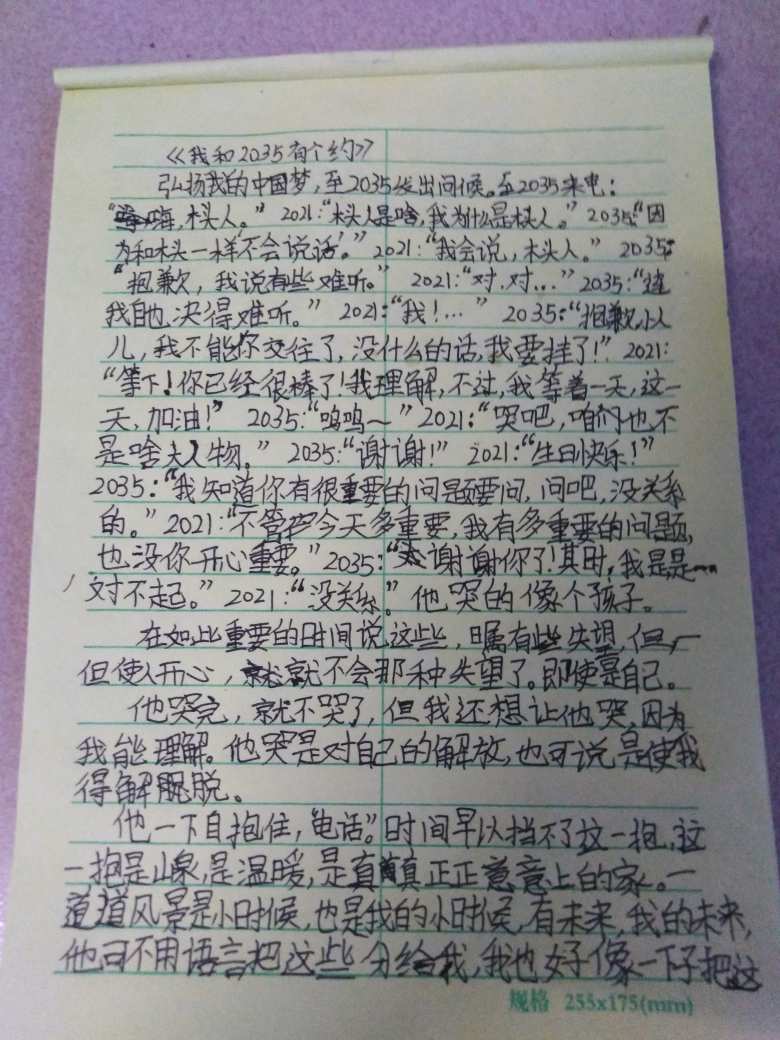 《我和2035有个约》
弘扬我的中国梦,至2035发出问候。至2035来电:
“嗨,木头人。” 2021:“木头人是啥,我为什么是木头人。” 2035:“因
为和木头一样不会说话。” 2021:“我会说,木头人。” 2035:
“抱歉,我说有些难听。” 2021:“对,对...” 2035:“连
我自也决得难听。” 2021:“我!...” 2035:“抱歉,小人
儿,我不能你交往了,没什么的话,我要挂了!” 2021:
“等下!你已经很棒了!我理解,不过,我等着一天,这一
天,加油!” 2035:“呜呜~” 2021:“哭吧,咱们也不
是啥大人物。” 2035:“谢谢!” 2021:“生日快乐!”
2035:“我知道你有很重要的问题要问,问吧,没关系
的。” 2021:“不管今天多重要,我有多重要的问题,
也没你开心重要。” 2035:“谢谢你了!其时,我是是一
对不起。” 2021:“没关系。” 他哭的像个孩子。
在如此重要的时间说这些,属有些失望,但
但使人开心,就不会那种失望了。即使是自己。
他哭完,就不哭了,但我还想让他哭,因为
我能理解。他哭是对自己的解放,也可说是使我
得解脱。
他一下自抱住,“电话”。时间早以挡不了这一抱,这
一抱是山泉,是温暖,是真真正正意意上的家。一
道道风景是小时候,也是我的小时候,有未来,我的未来,
他可不用语言把这些分给我,我也好像一下子把这
规格 255x175(mm)